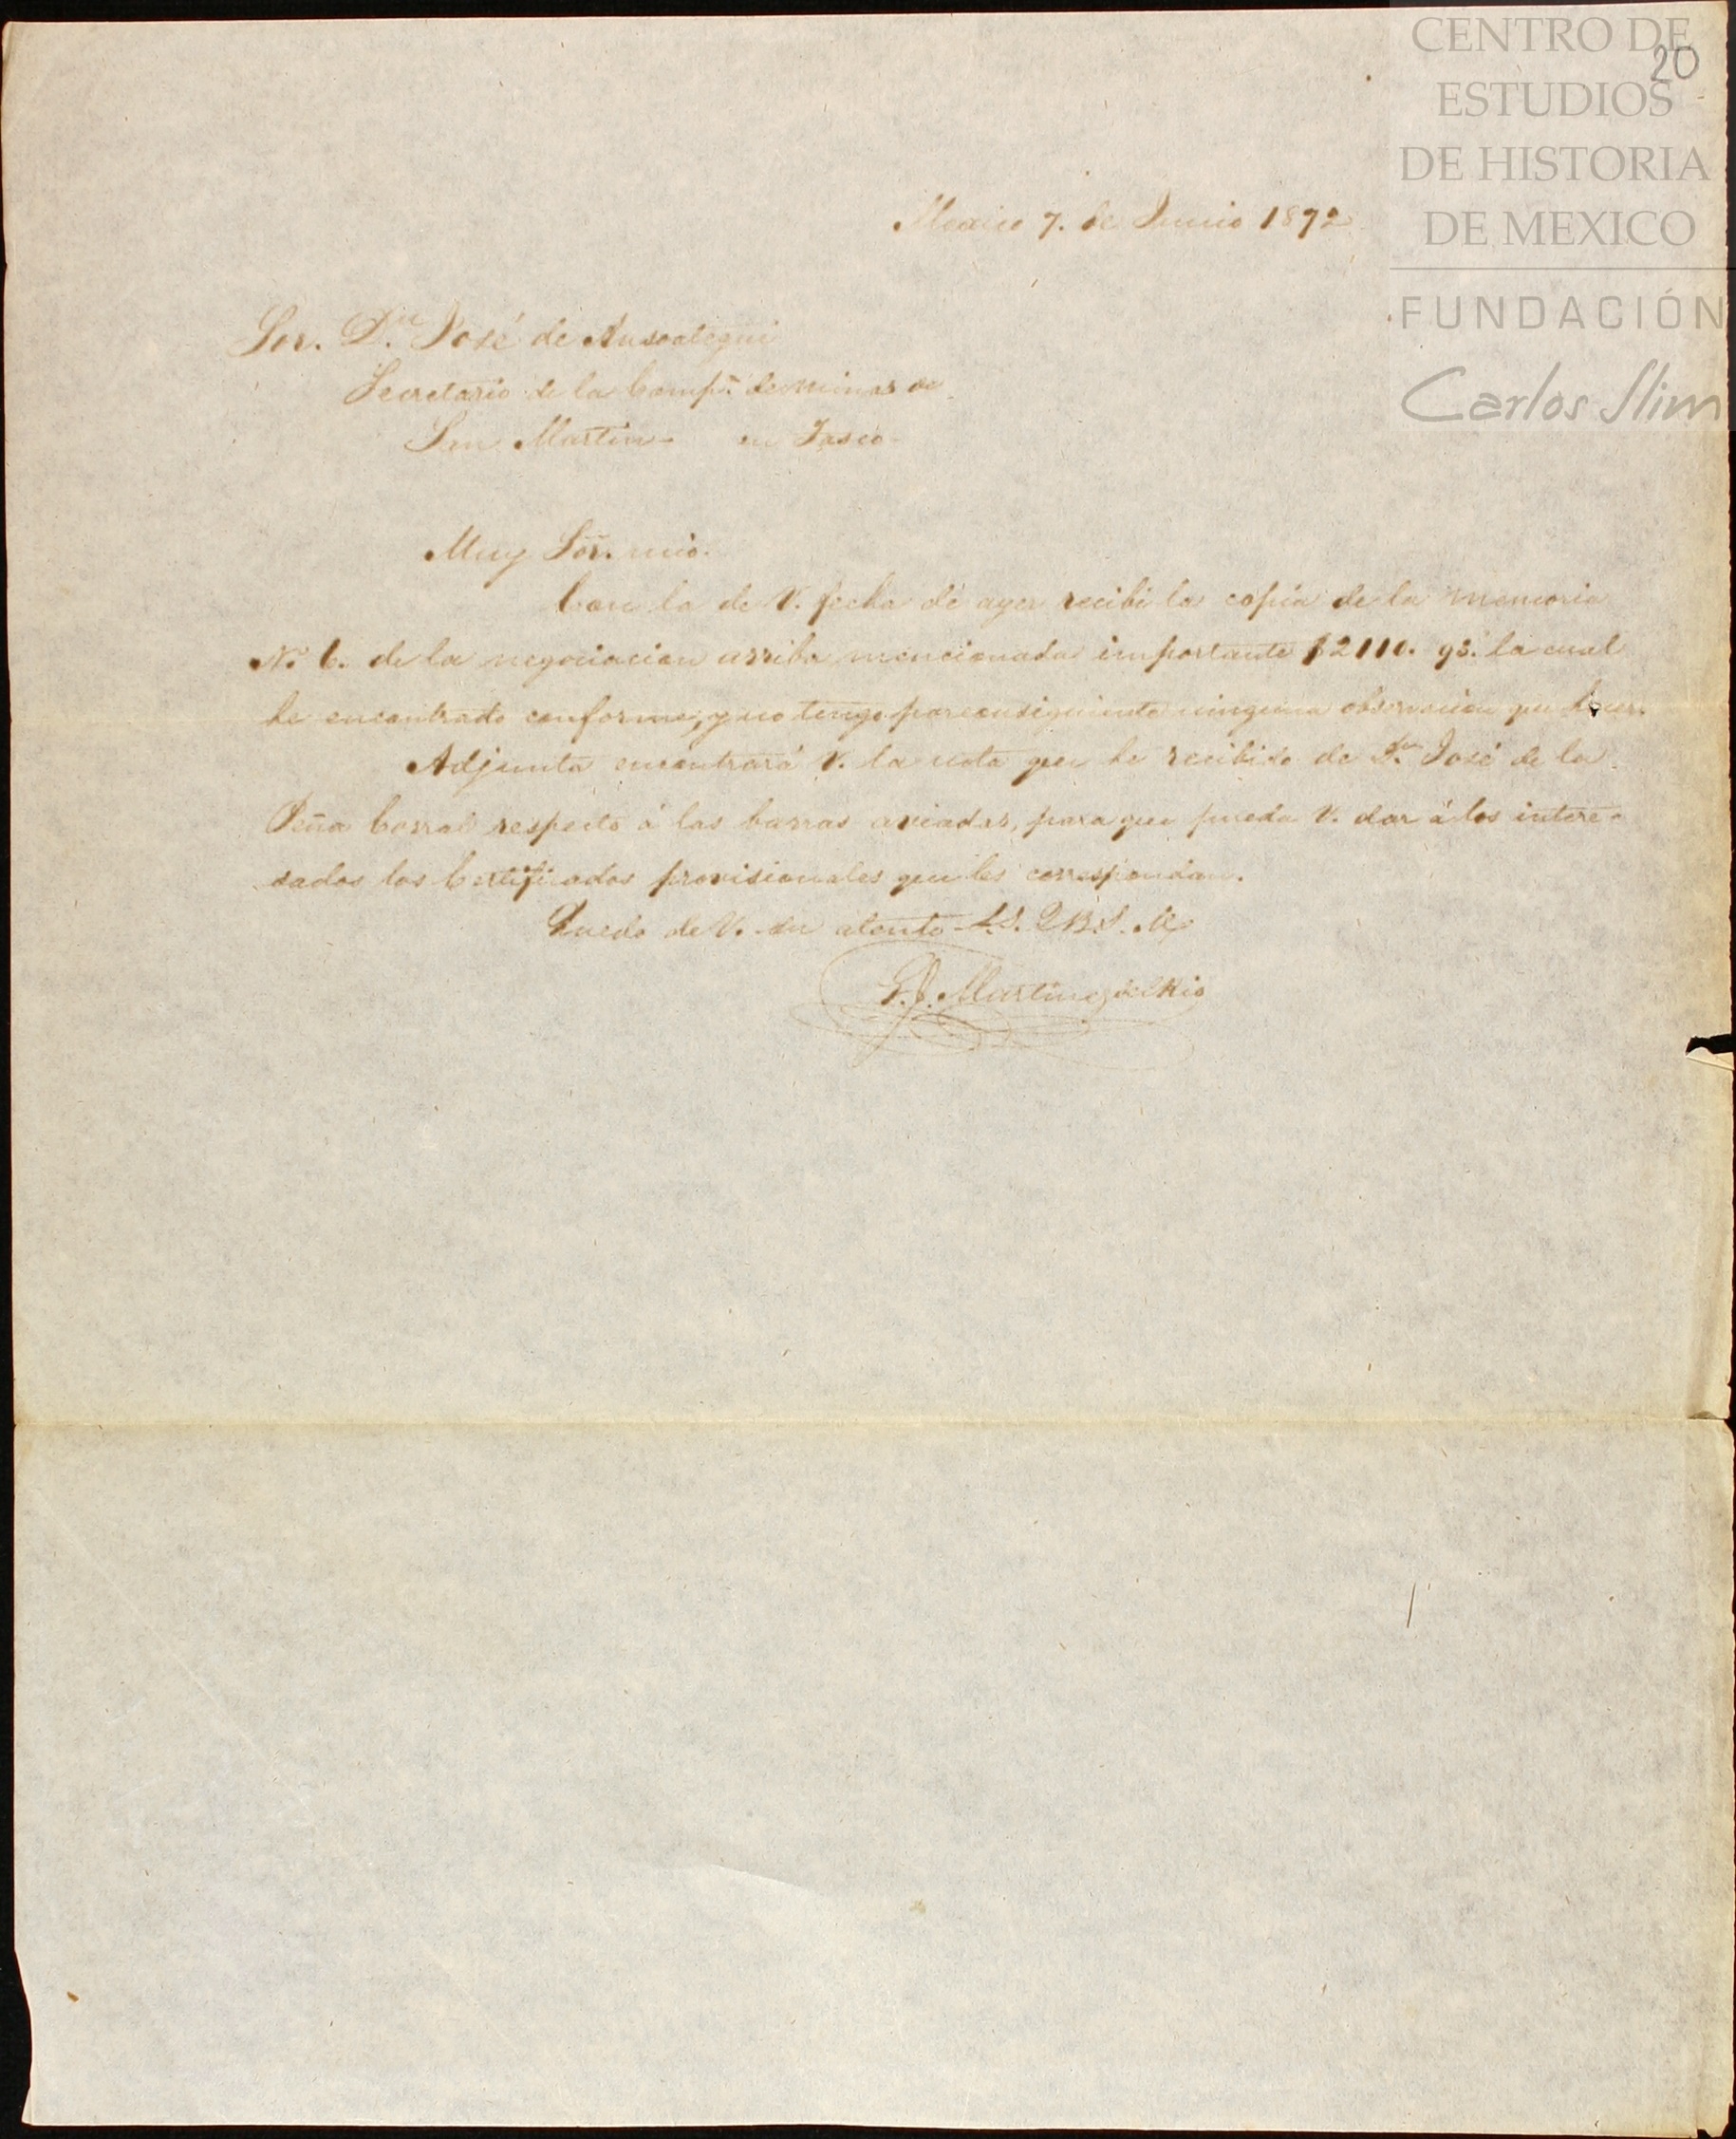 CENTRO DE
ESTUDIOS
DE HISTORIA
DE MEXICO
FUNDACIÓN
Carlos Slim
20
Mexico 7. de Junio 1872
Sor. Dn. José de Ansoategui
Secretario de la Comp.ª de minas de
San Martin - en Tasco -
Muy Sor. mio.
Con la de V. fecha de ayer recibi la copia de la memoria
No. 6. de la negociacion arriba mencionada importante $2110. 93. la cual
he encontrado conforme, y no tengo por consiguiente ninguna observacion que hacer.
Adjunta encontrará V. la nota que he recibido de Dn. José de la
Peña Corral respecto á las barras aviadas, para que pueda V. dar á los intere-
sados los Certificados provisionales que les correspondan.
Quedo de V. su atento S.S. Q.B.S.M.
Martinez del Rio